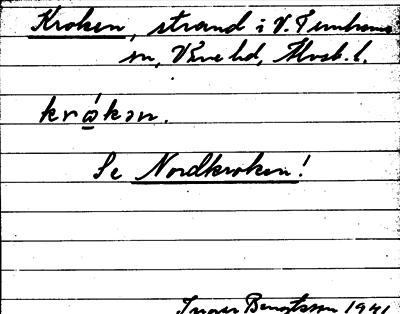 Kroken, strand i V. Tunhems
sn, Väne hd, Älvsb. l.
krɷ́kən.
Se Nordkroken!
Ingvar Bengtsson 1941